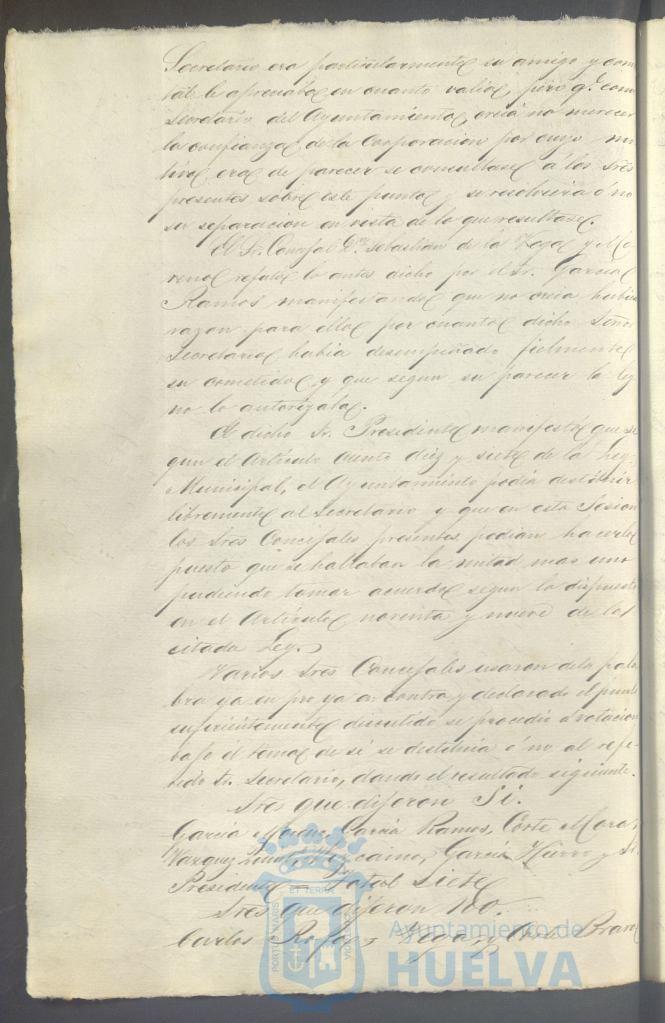 Secretario era particularmente su amigo y como
tal le apreciaba en cuanto valia, pero qe. como
Secretario del Ayuntamiento, creia no merecer
la confianza de la Corporacion por cuyo mo
tivo era de parecer se consultase á los Sres
presentes sobre este punto y se resolviera ó no
su separacion en vista de lo que resultase.
El Sr. Concejal Dn. Sebastian de la Vega y Mo
reno refuto lo antes dicho por el Sr. Garcia
Ramos manifestando que no creia habia
razon para ello por cuanto dicho Señor
Secretario habia desempeñado fielmente
su cometido, y que segun su parecer la ley
no lo autorizaba.
El dicho Sr. Presidente manifestó que se
gun el Articulo ciento diez y siete de la Ley
Municipal, el Ayuntamiento podia destituir
libremente al Secretario y que en esta Sesion
los Sres Concejales presentes podian hacerlo
puesto que se hallaban la mitad mas uno
pudiendo tomar acuerdo segun lo dispuesto
en el Articulo noventa y nueve de la
citada Ley.
Varios Sres Concejales usaron de la pala
bra ya en pro ya en contra y declarado el punto
suficientemente discutido se procedió á votacion
bajo el tema de si se destituia ó no al refe
rido Sr. Secretario, dando el resultado siguiente.
Sres que dijeron Si.
Garcia Garcia Ramos, Corte Mora,
Vazquez Vizcaino, Garcia Hierro y Sr.
Presidente = Total Siete
Sres que dijeron No.
Carlos Vega y Bravo
PORTUS MARIS ET TERRAE CUSTODIA
Ayuntamiento de
HUELVA